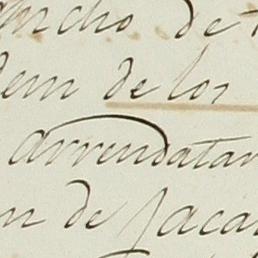 ancho de
dem de los
arrendatar
m de Jacar